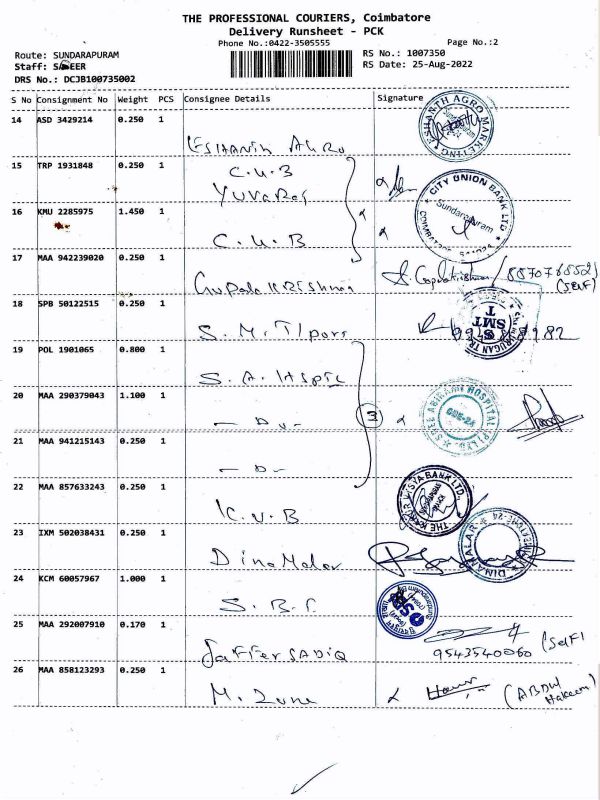 THE PROFESSIONAL COURIERS, Coimbatore
Delivery Runsheet - PCK
Phone No.:0422-3505555
Page No.:2
Route: SUNDARAPURAM
RS No.: 1007350
Staff: SAMEER
RS Date: 25-Aug-2022
DRS No.: DCJB100735002
S No Consignment No Weight PCS Consignee Details Signature
14 ASD 3429214 0.250 1
ESHANTH AGRO MARKETING
15 TRP 1931848 0.250 1
C.U.B
YUVARAJ
16 KMU 2285975 1.450 1
CITY UNION BANK LTD
Sundarapuram
C.U.B
17 MAA 942239020 0.250 1
Gopalakrishnan
S. Gopalakrishnan / 887076852
(SELF)
18 SPB 50122515 0.250 1
S.M.T
SMT
19 POL 1901065 0.800 1
S.A.
20 MAA 290379043 1.100 1
3
SREE ABIRAMI HOSPITAL
21 MAA 941215143 0.250 1
22 MAA 857633243 0.250 1
K.V.B
THE KARUR VYSYA BANK LTD.
23 IXM 502038431 0.250 1
Dinamalar
DINAMALAR
24 KCM 60057967 1.000 1
S.B.I
SBI
25 MAA 292007910 0.170 1
Jaffer SADIQ
9543540060 (Self)
26 MAA 858123293 0.250 1
(ABDUL Hakeem)